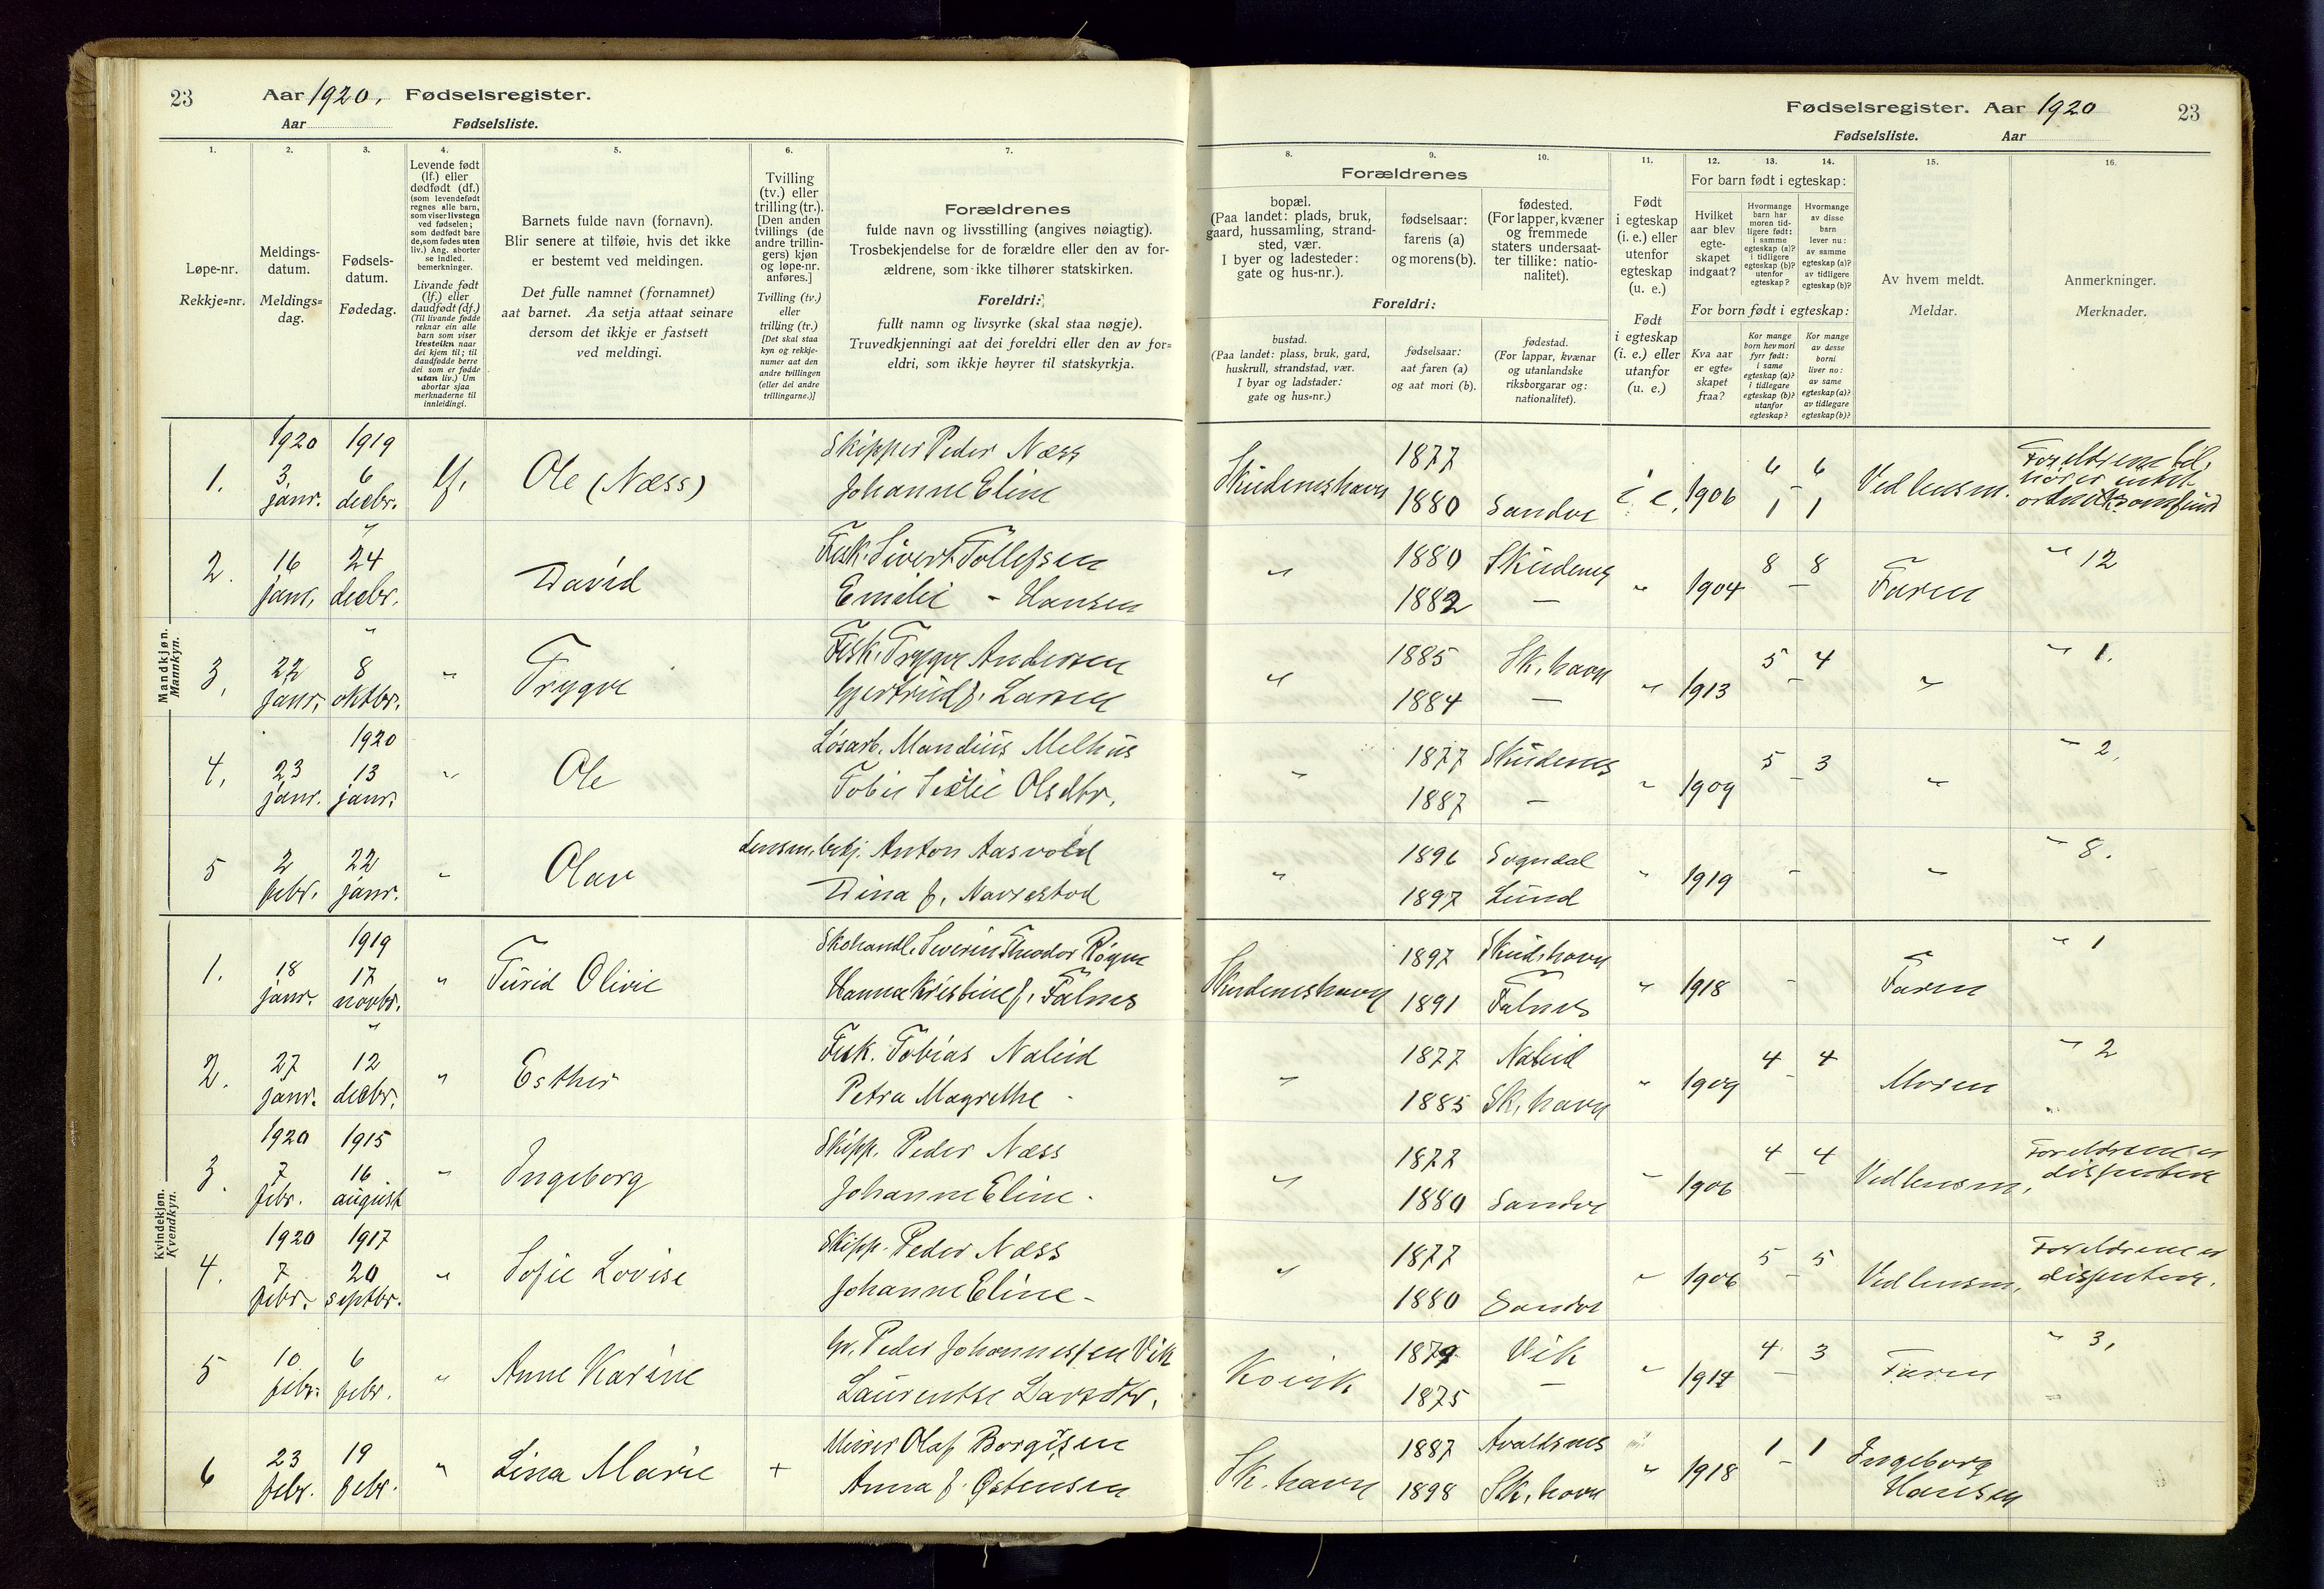 23
Aar 1920. Fødselsregister.
Aar Fødselsliste.
1.
2.
3.
4.
5.
6.
7.
Løpe-nr.
Rekkje=nr.
Meldings-
datum.
Meldings=
dag.
Fødsels-
datum.
Fødedag.
Levende født
(lf.) eller
dødfødt (df.)
(som levendefødt
regnes alle barn,
som viser livstegn
ved fødselen;
som dødfødt bare
de, som fødes uten
liv.) Ang. aborter
se indled.
bemerkninger.
Livande født
(lf.) eller
daudfødt (df.)
(Til livande fødde
reknar ein alle
barn som viser
livsteikn naar
dei kjem til; til
daudfødde berre
dei som er fødde
utan liv.) Um
abortar sjaa
merknaderne til
innleidingi.
Barnets fulde navn (fornavn).
Blir senere at tilføie, hvis det ikke
er bestemt ved meldingen.
Det fulle namnet (fornamnet)
aat barnet. Aa setja attaat seinare
dersom det ikkje er fastsett
ved meldingi.
Tvilling
(tv.) eller
trilling (tr.).
[Den anden
tvillings (de
andre trillin-
gers) kjøn
og løpe-nr.
anføres.]
Tvilling (tv.)
eller
trilling (tr.)
[Det skal staa
kyn og rekkje-
numer aat den
andre tvillingen
(eller dei andre
trillingarne.)]
Forældrenes
fulde navn og livsstilling (angives nøiagtig).
Trosbekjendelse for de forældre eller den av for-
ældrene, som ikke tilhører statskirken.
Foreldri:
fullt namn og livsyrke (skal staa nøgje).
Truvedkjenningi aat dei foreldri eller den av for=
eldri, som ikkje høyrer til statskyrkja.
Mandkjøn.
Mannkyn.
1920 1919
1. 3. janr. 6 decbr. lf. Ole (Næss) Skipper Peder Næss
Johanne Eline
2. 16 janr. 24 decbr. David Fisk. Sivert Tollefsen
Emilie - Hansen
3. 22 janr. 8 oktbr. " Trygve Fisk. Trygve Andersen
Gjertrud f. Larsen
1920
4. 23 janr. 13 janr. " Ole Løsarb. Mandius Melhus
Olsdtr.
5 2 febr. 22 janr. " Olav lensm. betj. Anton Aasvold
Dina f. Navrestad
Kvindekjøn.
Kvendkyn.
1919
1. 18 janr. 17 novbr. " Turid Olivie Skohandl. Severin Theodor
Hanna Kristine f. Falnes
2. 27 janr. 12 decbr. " Esther Fisk. Tobias
Petra Magrethe
1920 1915
3. 7 febr. 16 august " Ingeborg Skipp. Peder Næss
Johanne Eline -
1920 1917
4. 7 febr. 20 septbr. " Sofie Lovise Skipp. Peder Næss
Johanne Eline -
5 10 febr. 6 febr. " Anne Karine Peder Johannessen Vik
Laurentse Larsdtr.
6 23 febr. 19 febr. " Lina Marie + Murer Olaf Borgisen
Anna f.
Fødselsregister. Aar 1920
23
Fødselsliste. Aar
8.
9.
10.
11.
12.
13.
14.
15.
16.
Forældrenes
bopæl.
(Paa landet: plads, bruk,
gaard, hussamling, strand-
sted, vær.
I byer og ladesteder:
gate og hus-nr.).
fødselsaar:
farens (a)
og morens (b).
fødested.
(For lapper, kvæner
og fremmede
staters undersaat-
ter tillike: natio-
nalitet).
Foreldri:
bustad.
(Paa landet: plass, bruk, gard,
huskrull, strandstad, vær.
I byar og ladstader:
gate og hus=nr.)
fødselsaar:
aat faren (a)
og aat mori (b).
fødestad.
(For lappar, kvænar
og utanlandske
riksborgarar og:
nationalitet).
Født
i egteskap
(i. e.) eller
utenfor
egteskap
(u. e.)
Født
i egteskap
(i. e.) eller
utanfor
(u. e.)
For barn født i egteskap:
Hvilket
aar blev
egte-
skapet
indgaat?
Hvormange
barn har
moren tid-
ligere født:
i samme
egteskap (a)?
i tidligere
egteskap (b)?
utenfor
egteskap?
Hvormange
av disse
barn
lever nu:
av samme
egteskap (a)?
av tidligere
egteskap (b)?
For born født i egteskap:
Kva aar
er egte=
skapet
fraa?
Kor mange
born hev mori
fyrr født:
i same
egteskap (a)?
i tidlegare
egteskap (b)?
utanfor
egteskap?
Kor mange
av desse
borni
liver no:
av same
egteskap (a)?
av tidlegare
egteskap (b)?
Av hvem meldt.
Meldar.
Anmerkninger.
Merknader.
Skudeneshavn 1877
1880 Sandve i. e. 1906 6 - 6 Ved lensm. Foreldrene
1 1
" 1880 Skudenes " 1904 8 - 8 Faren " 12
1882 —
" 1885 Sk. havn " 1913 5 - 4 " " 1.
1884 —
" 1877 Skudenes " 1909 5 - 3 " " 2.
1887 —
" 1896 Sogndal " 1919 - " " 8.
1897 Lund
Skudeneshavn 1897 Skud.havn " 1918 - Faren " 1
1891 Falnes
" 1877 " 1909 4 - 4 Moren " 2
1885 Sk. havn
" 1877 " 1906 4 - 4 Ved lensm. Foreldrene er
1880 Sandve
" 1877 " 1906 5 - 5 Ved lensm. Foreldrene er
1880 Sandve
1879 Vik " 4 - 3 Faren " 3.
1875 —
Sk. havn 1887 Avaldsnes " 1918 1 - 1 Ingeborg
1898 Sk. havn Hansen